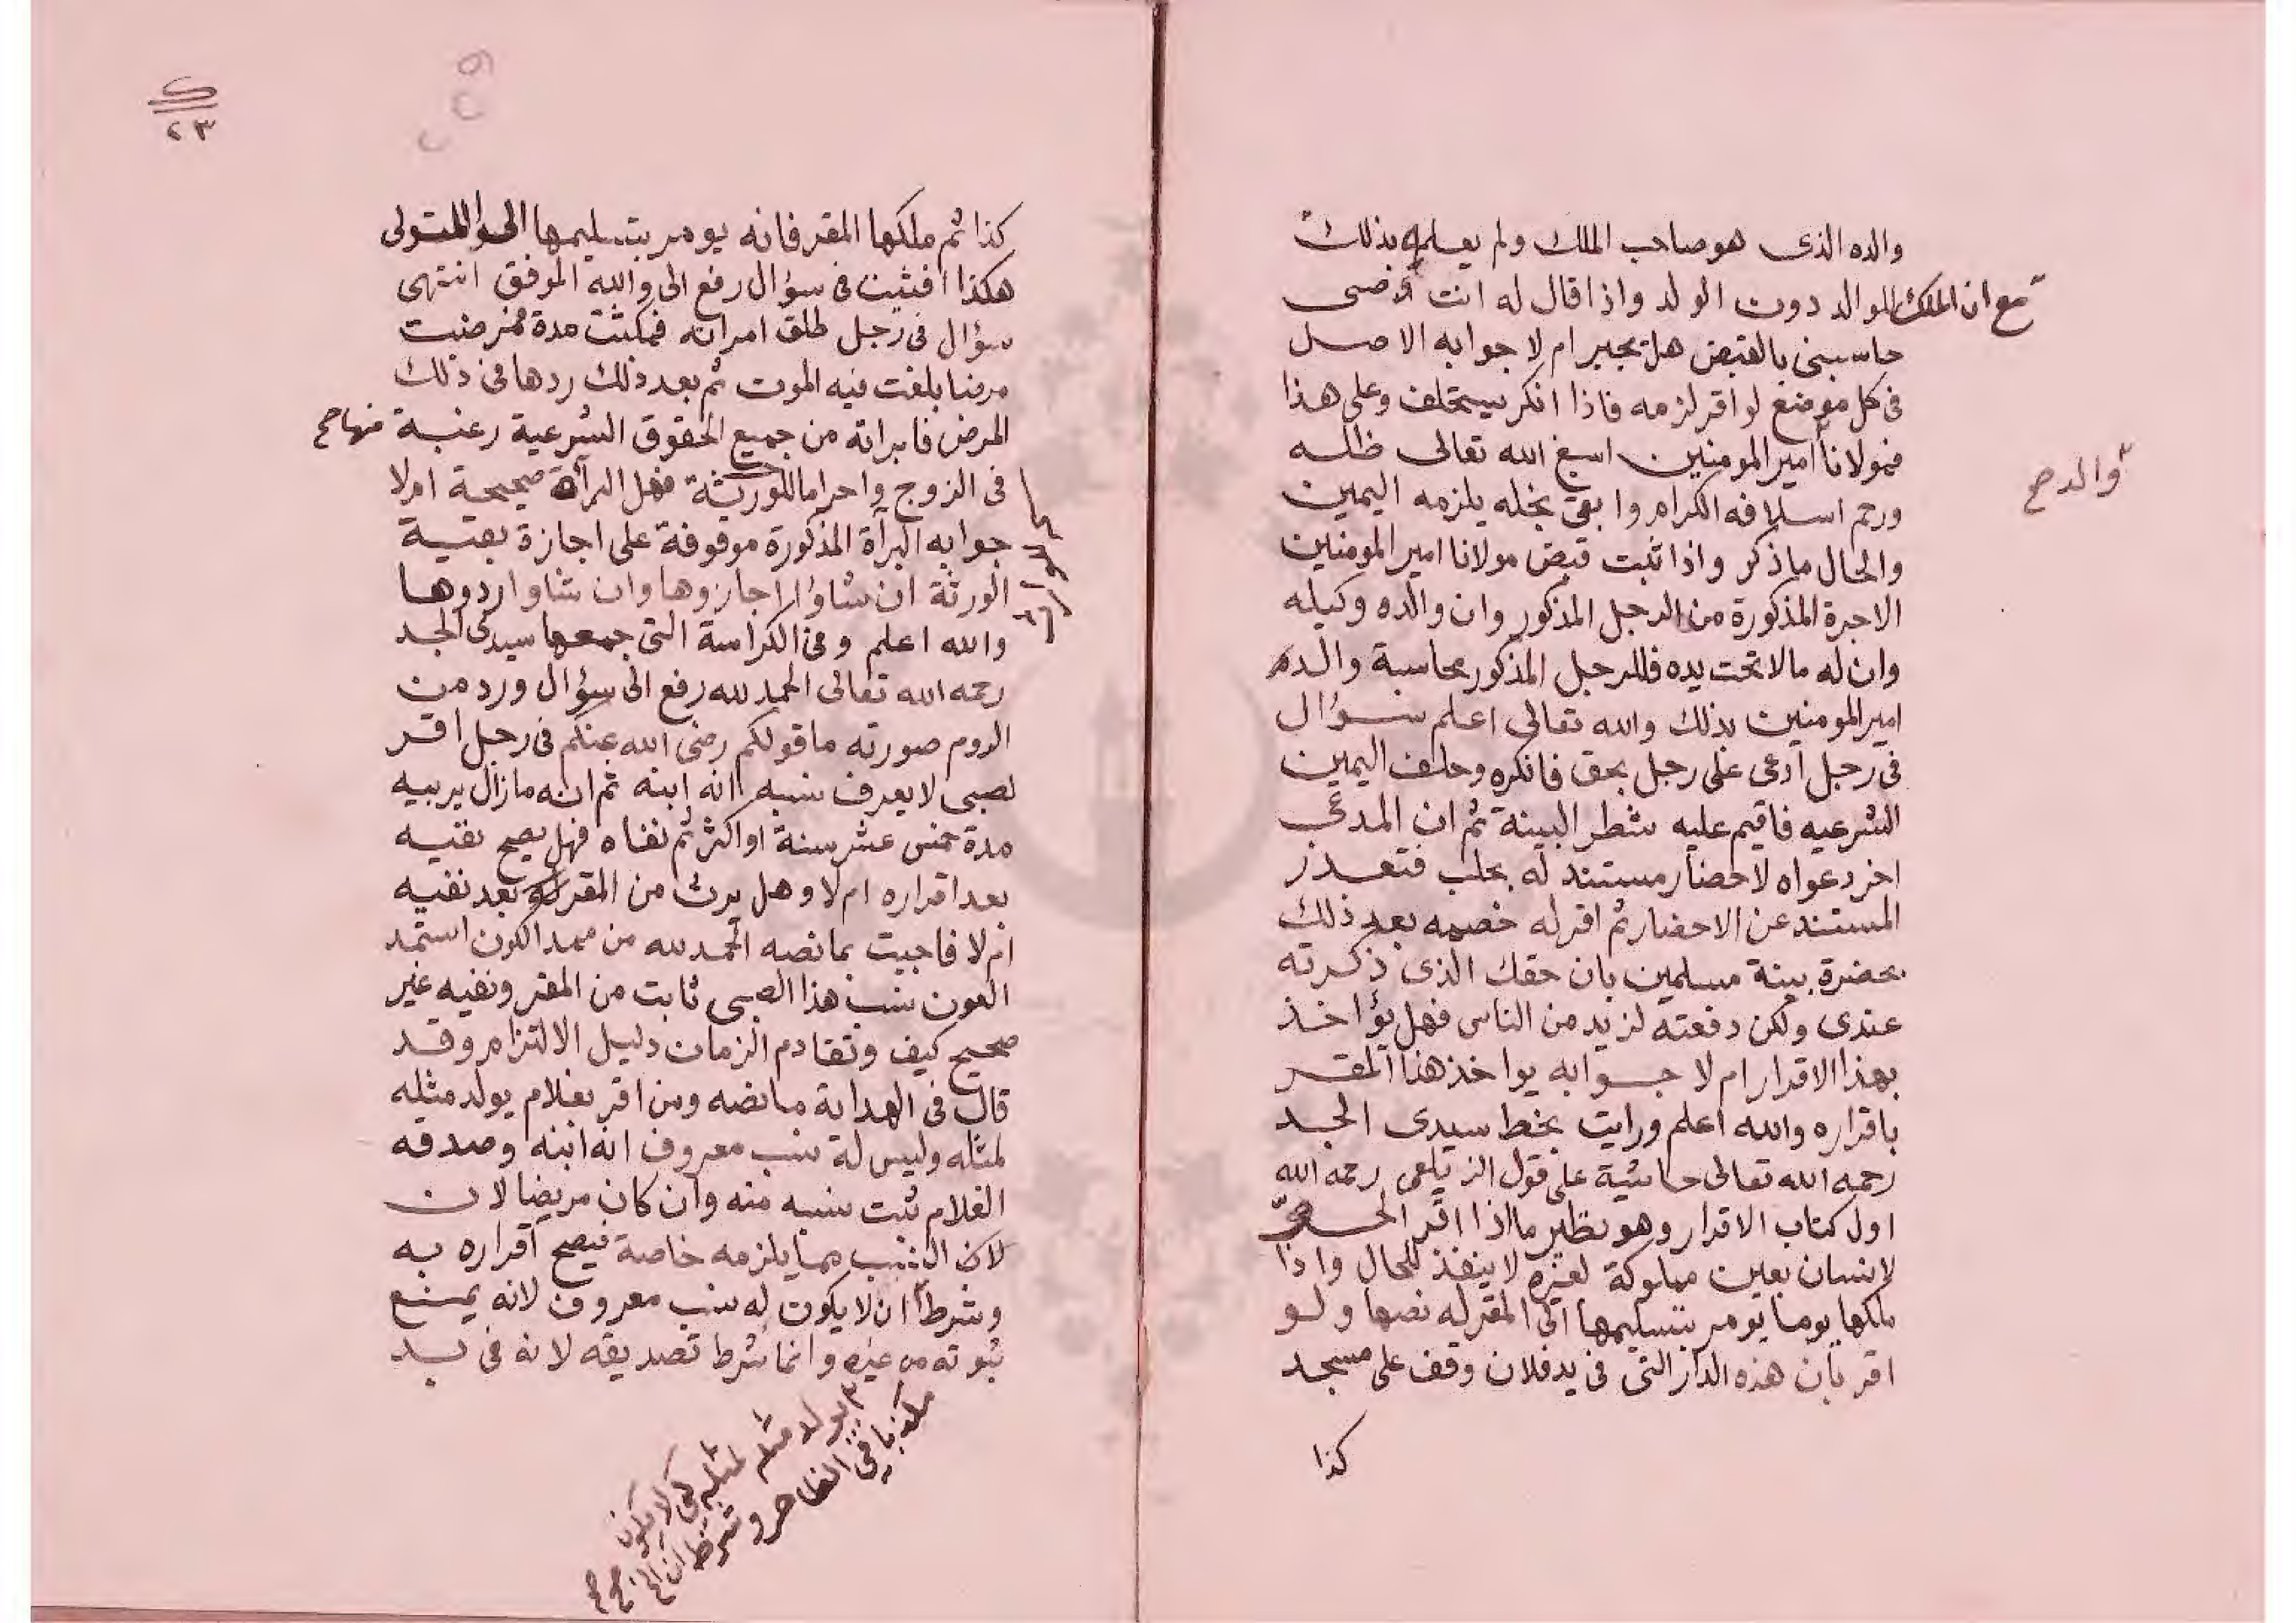 والده الذى هو صاحب الملك ولم يعلم بذلك
مع ان الملك للوالد دون الولد واذا قال له انت
حاسبنى بالقبض هل يجبر ام لا جوابه الاصل
فى كل موضع لو اقر لزمه فاذا انكر يستحلف وعلى هذا
فمولانا امير المومنين اسبغ الله تعالى ظله
ورحم اسلافه الكرام وابقى نجله يلزمه اليمين
والدصح
والحال ما ذكر واذا ثبت قبض مولانا امير المومنين
الاجرة المذكورة من الرجل المذكور وان والده وكيله
وان له مالا تحت يده فللرجل المذكور محاسبة والده
امير المومنين بذلك والله تعالى اعلم سؤال
فى رجل ادعى على رجل بحق فانكره وحلف اليمين
الشرعيه فاقيم عليه شطر البينة ثم ان المدعى
اخر دعواه لاحضار مستند له بحلب فتعذر
المستند عن الاحضار ثم اقر له خصمه بعد ذلك
بحضرة بينة مسلمين بان حقك الذى ذكرته
عندى ولكن دفعته لزيد من الناس فهل يؤاخذ
بهذا الاقرار ام لا جوابه يواخذ هذا المقر
باقراره والله اعلم ورايت بخط سيدى الجد
رحمه الله تعالى حاشية على قول الزيلعى رحمه الله
اول كتاب الاقرار وهو نظير ما اذا اقر الحر
لانسان بعين مملوكة لغيره لا ينفذ للحال واذا
ملكها يوما يومر بتسليمها الى المقر له نصها ولو
اقر بأن هذه الدار التى فى يد فلان وقف على مسجد
كذا
٢٣
كذا ثم ملكها المقر فانه يومر بتسليمها الى المتولى
هكذا افتيت فى سؤال رفع الى والله الموفق انتهى
سؤال فى رجل طلق امراته فمكثت مدة فمرضت
مرضا بلغت فيه الموت ثم بعد ذلك ردها فى ذلك
المرض فابراته من جميع الحقوق الشرعية رغبة منها صح
فى الزوج واحراما للورثة فهل البرأة صحيحة ام لا
جوابه البرأة المذكورة موقوفة على اجازة بقية
الورثة ان شاؤا اجازوها وان شاوا ردوها
والله اعلم وفى الكراسة التى جمعها سيدى الجد
رحمه الله تعالى الحمد لله رفع الى سؤال ورد من
الروم صورته ما قولكم رضى الله عنكم فى رجل اقر
لصبى لا يعرف نسبه انه ابنه ثم انه مازال يربيه
مدة خمس عشر سنة او اكثر ثم نفاه فهل يصح نفيه
بعد اقراره ام لا وهل يرث من المقر له بعد نفيه
ام لا فاجبت بما نصه الحمد لله من ممد الكون استمد
العون نسب هذا الصبى ثابت من المقر ونفيه غير
صحيح كيف وتقادم الزمان دليل الالتزام وقد
قال فى الهداية ما نصه ومن اقر بغلام يولد مثله
لمثله وليس له نسب معروف انه ابنه وصدقه
الغلام ثبت نسبه منه وان كان مريضا لان
لان النسب مما يلزمه خاصة فيصح اقراره به
وشرط ان لا يكون له نسب معروف لانه يمنع
ثبوته من غيره وانما شرط تصديقه لانه فى يد
٣ يولد مثله لمثله كى لا يكون
مكذبا فى الظاهر وشرط ان الخ صح